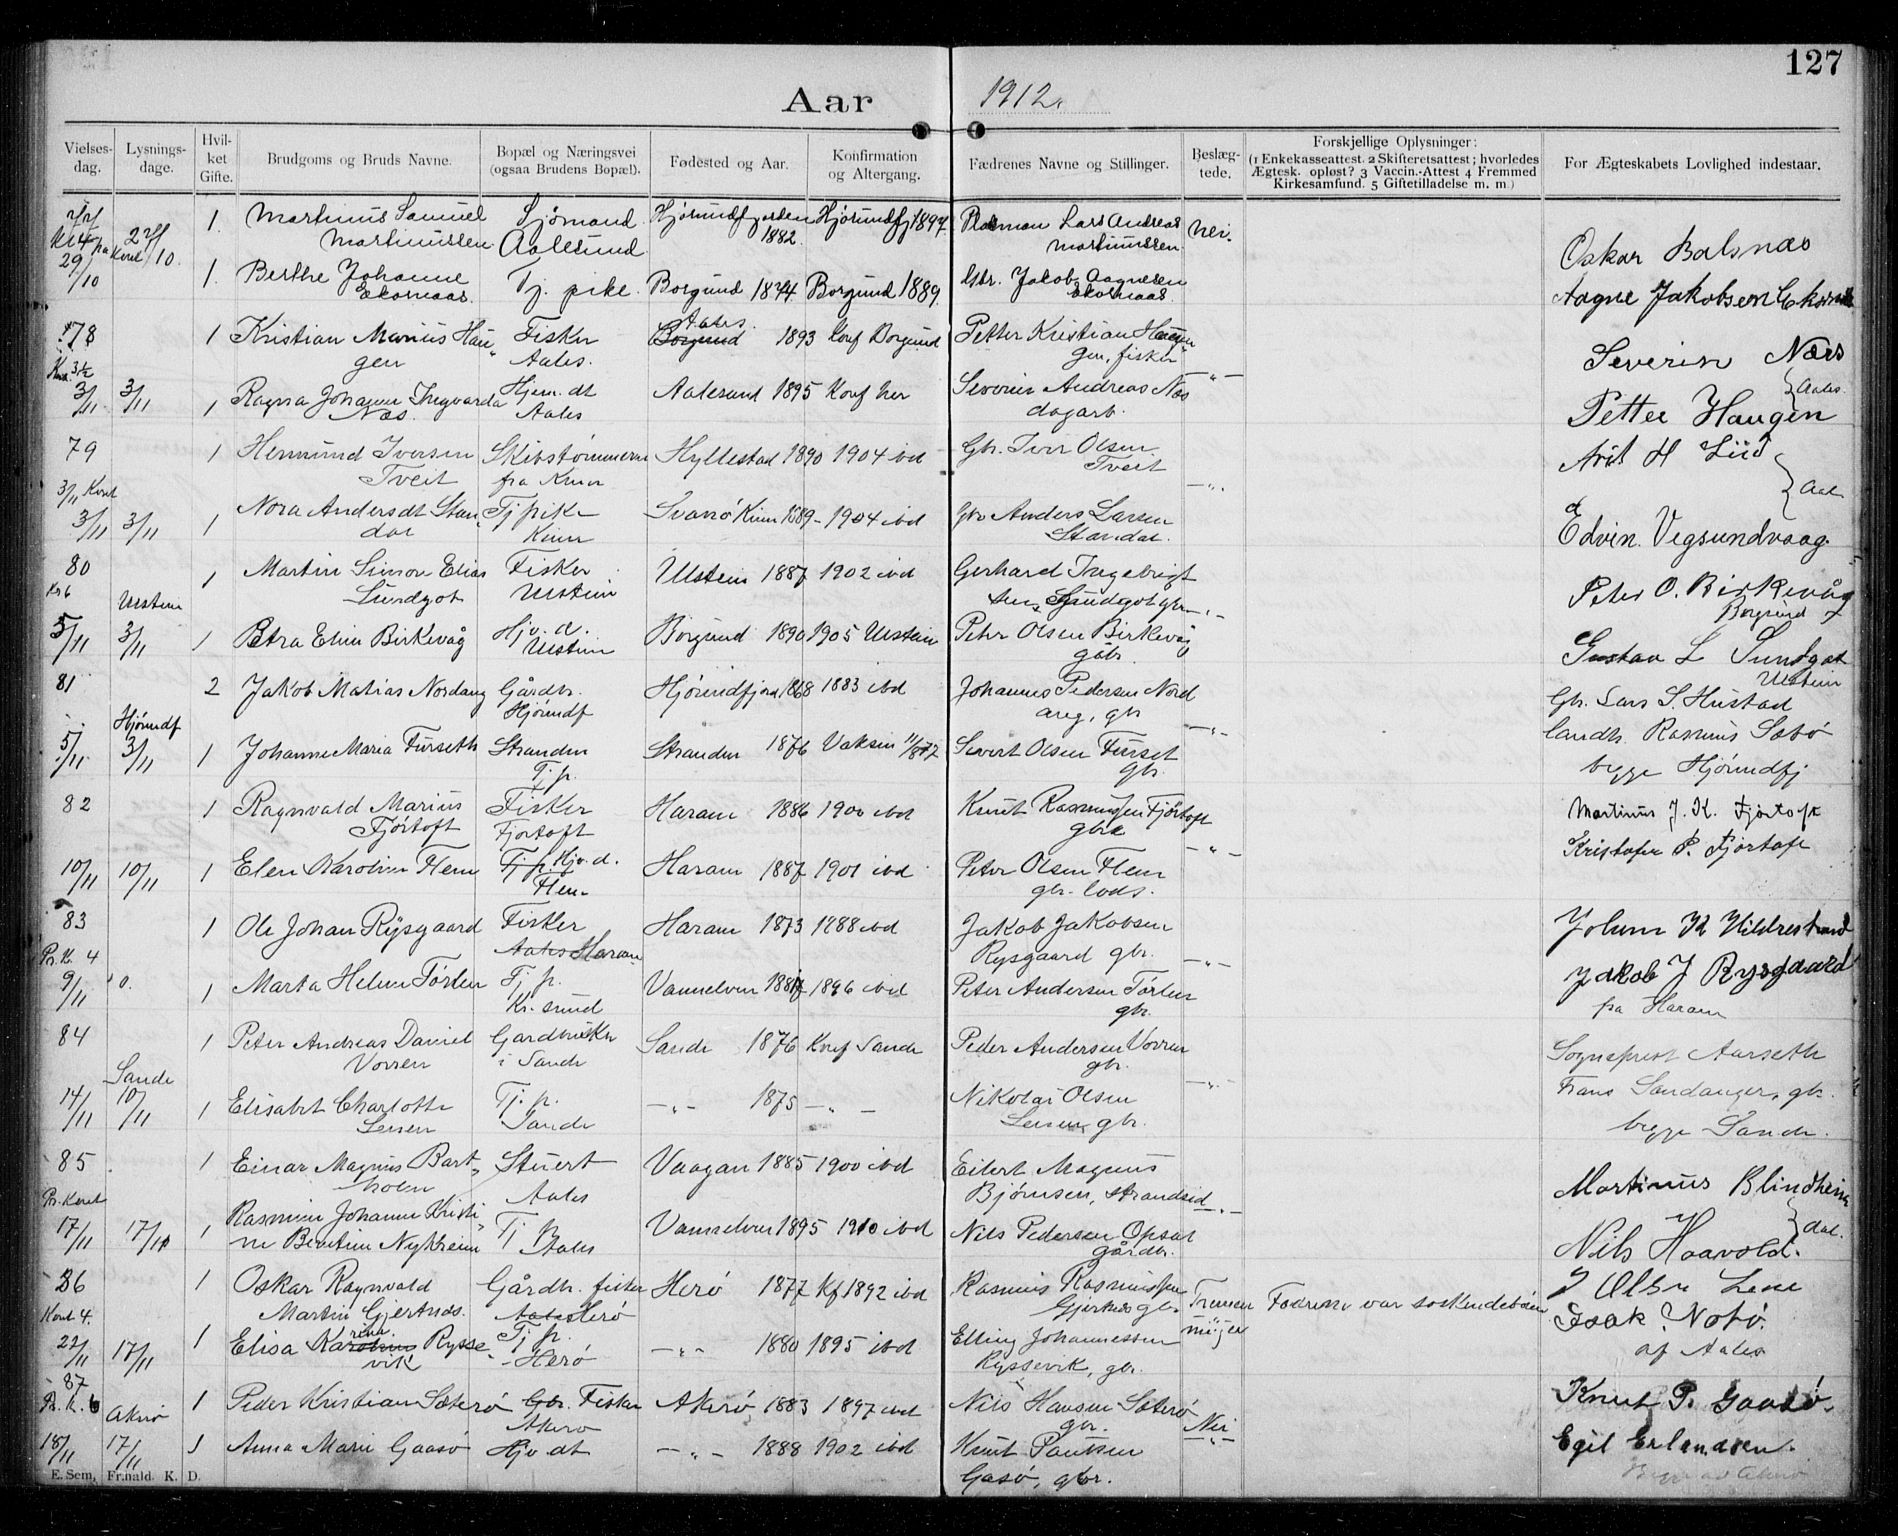 127
Aar 1912.
Vielses-dag. Lysnings-dage. Hvil-ket Gifte. Brudgoms og Bruds Navne. Bopæl og Næringsvei (ogsaa Brudens Bopæl). Fødested og Aar. Konfirmation og Altergang. Fædrenes Navne og Stillinger. Beslæg-tede. Forskjellige Oplysninger: (1 Enkekasseattest. 2 Skifteretsattest; hvorledes Ægtesk. opløst? 3 Vaccin.-Attest 4 Fremmed Kirkesamfund. 5 Giftetilladelse m. m.) For Ægteskabets Lovlighed indestaar.
1. Martinus Samuel Sjömand Hjörundfjorden Hjörundfj 1897. Lars Andreas nei.
Martinussen Aalesund 1882. Martinussen Oskar Balsnæs
29/10 1. Berthe Johanne Tj. pike. Borgund 1874 Borgund 1889. Jakob Aagnesen
Ekornaas. Ekornaas Aagne Jakobsen
78 1 Kristian Marius Hau Fisker Aales. Borgund 1893 Konf Borgund Petter Kristian Haugen
gen Aales. gen, fisker -"- Severin Næs
3/11 3/11 1 Ragna Johanne Ingvarda Hjem. dt Aalesund 1895 Konf her Severin Andreas Næs Aales.
Næs. Aales dagarb. Petter Haugen
79 1 Hermund Iversen Skibstømmerm Hyllestad 1890 1904 ibd Gbr. Iver Olsen
Tveit fra Kinn Tveit -"-
3/11 3/11 1 Nora Andersdt Stan Tj pike Svanö Kinn 1889 - 1904 ibd Gbr Anders Larsen Aal
dal Kinn Standal. Edvin. Vegsundvaag
80 1 Martin Simon Elias Fisker Ulstein 1887 1902 ibd Gerhard Ingebrigt
Sundgot Ulstein sen Sundgot gbr -"- Peter O. Birkevåg
Ulstein Borgund
5/11 3/11 1 Petra Elin Birkevåg Hjv. d. Borgund 1890 1905 Ulstein Peter Olsen Birkevåg
Ulstein gbr. Gustav L Sundgot
Ulstein
81 2 Jakob Matias Nordang Gårdbr. Hjörundfjord 1868 1883 ibd Johannes Pedersen Nord
Hjörundf Hjörundf ang, gbr -"- Gbr. Lars S. Hustad
5/11 3/11 1 Johanne Maria Furseth Stranden Stranden 1876 Vaksin 11/8 77 Sivert Olsen Furset Landh. Rasmus Sæbö
Tj. p. gbr. begge Hjörundfj
82 1 Ragnvald Marius Fisker Haram 1886 1900 ibd Knut Rasmussen Fjörtoft Martinus J. K. Fjørtoft
Fjörtoft Fjortoft gbr -"- Kristofer P. Fjørtoft
10/11 10/11 1 Elen Karoline Flem Tj. p Hjv. d. Haram 1887 1901 ibd Peter Olsen Flem
Flem gbr. lods.
83 1 Ole Johan Rysgaard Fisker Haram 1873 1888 ibd Jakob Jakobsen
Pr. K. 4 Aales Haram Rysgaard gbr. -"-
9/11 1 Marta Helene Förlen Tj p. Vannelven 1896 ibd Peter Andersen Jakob J Rysgaard
Kr. sund gbr. på Haram
84 1 Peter Andreas Daniel Gardbruker Sande 1876 Konf Sande Peder Andersen Vorren
Vorren i Sande gbr. -"- Sogneprest Aarseth
Sande
14/11 10/11 1 Elisabet Charlotte Tj. p. -"- 1875 -"- Nikolai Olsen Frans Sandanger, gbr.
Sande gbr. begge Sande.
85 1 Einar Magnus Bart Stuert Vaagan 1885 1900 ibd Eilert Magnus
holm Aales Björnsen, strandsid. -"- Martinus Blindheim
17/11 17/11 1 Rasmine Johanne Kristi Tj p. Vannelven 1895 1910 ibd Nils Pedersen Opsal Aal.
ne Bentine Nykreim Aales gårdbr. Nils Haavold.
86 1 Oskar Ragnvald Gårdbr. fisker Herö 1877 Kf 1892 ibd Rasmus Rasmussen Tremen Fædrene var søskendebörn J Olsen Lene
Kort 4. Martin Gjertnds. Aales Herö gbr. ninger Isak Notö.
22/11 17/11 1 Elisa Karoline rina Rysse Tj. p. -"- 1880 1895 ibd Elling Johannessen
vik -Herö Ryssevik, gbr. af Aales
87 1 Peder Kristian Sæterö Gbr. Fisker Akerö 1883 1897 ibd Nils Hansen Sæterö Knut P. Gaasö.
Akerö Akerö gbr. Nei
18/11 17/11 1 Anna Marie Gaasö Hjv dt -"- 1888 1902 ibd Knut Paulsen Egil Erlandsen.
Gasö, gbr.
E. Sem, Fr.hald. K. D.